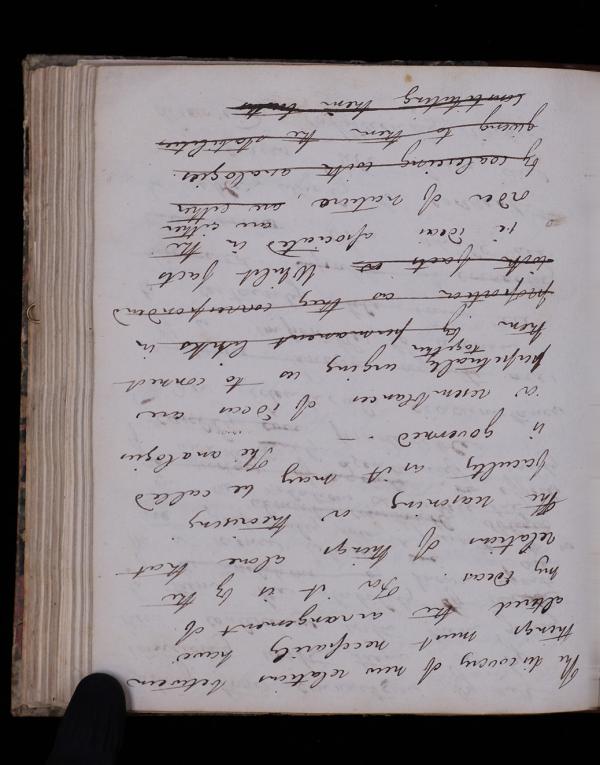 The discovery of new relations between
things must necessarily have
altered the arrangement of
my ideas. For it is by the
relations of things alone that
the reasoning or theorising
faculty as it may be called
is governed. — The analogies
or resemblances of ideas are
perpetually urging us to connect
together
them by permanent links in
proportion as they corresponded
with facts as Whilst facts
i.e ideas associated in the
order of nature, are either
are either
by coalescing with analogies
giving to them the stabilities
constituting them truths